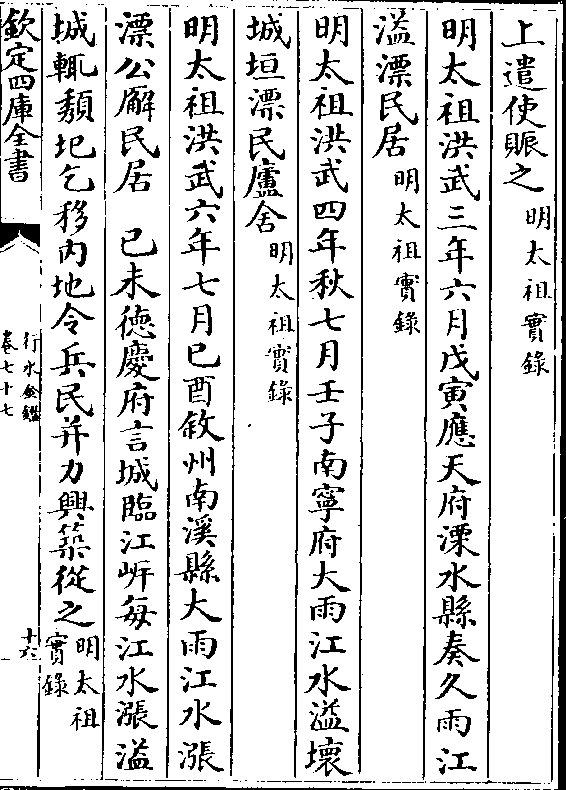 上遣使賑之 明太祖實錄
明太祖洪武三年六月戊寅應天府溧水縣奏久雨江
溢漂民居 明太祖實錄
明太祖洪武四年秋七月壬子南寧府大雨江水溢壞
城垣漂民廬舍 明太祖實錄
明太祖洪武六年七月己酉敘州南溪縣大雨江水漲
漂公廨民居 己未德慶府言城臨江岸每江水漲溢
城輒頽圮乞移内地令兵民并力興築從之 明太祖
實錄
欽定四庫全書
行水金鑑
卷七十七
十六